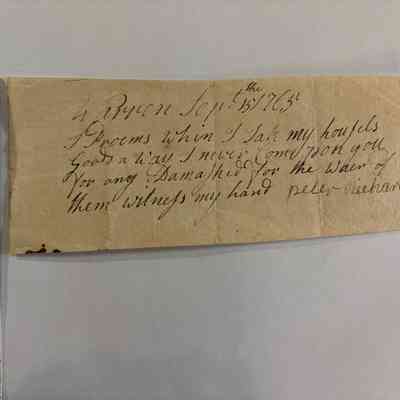 Warren Sept the 15 1765
I Promis when I Tak my housels
Goods a way I never Come upon you
for any Damashed for the waer of
them witness my hand peter Richar